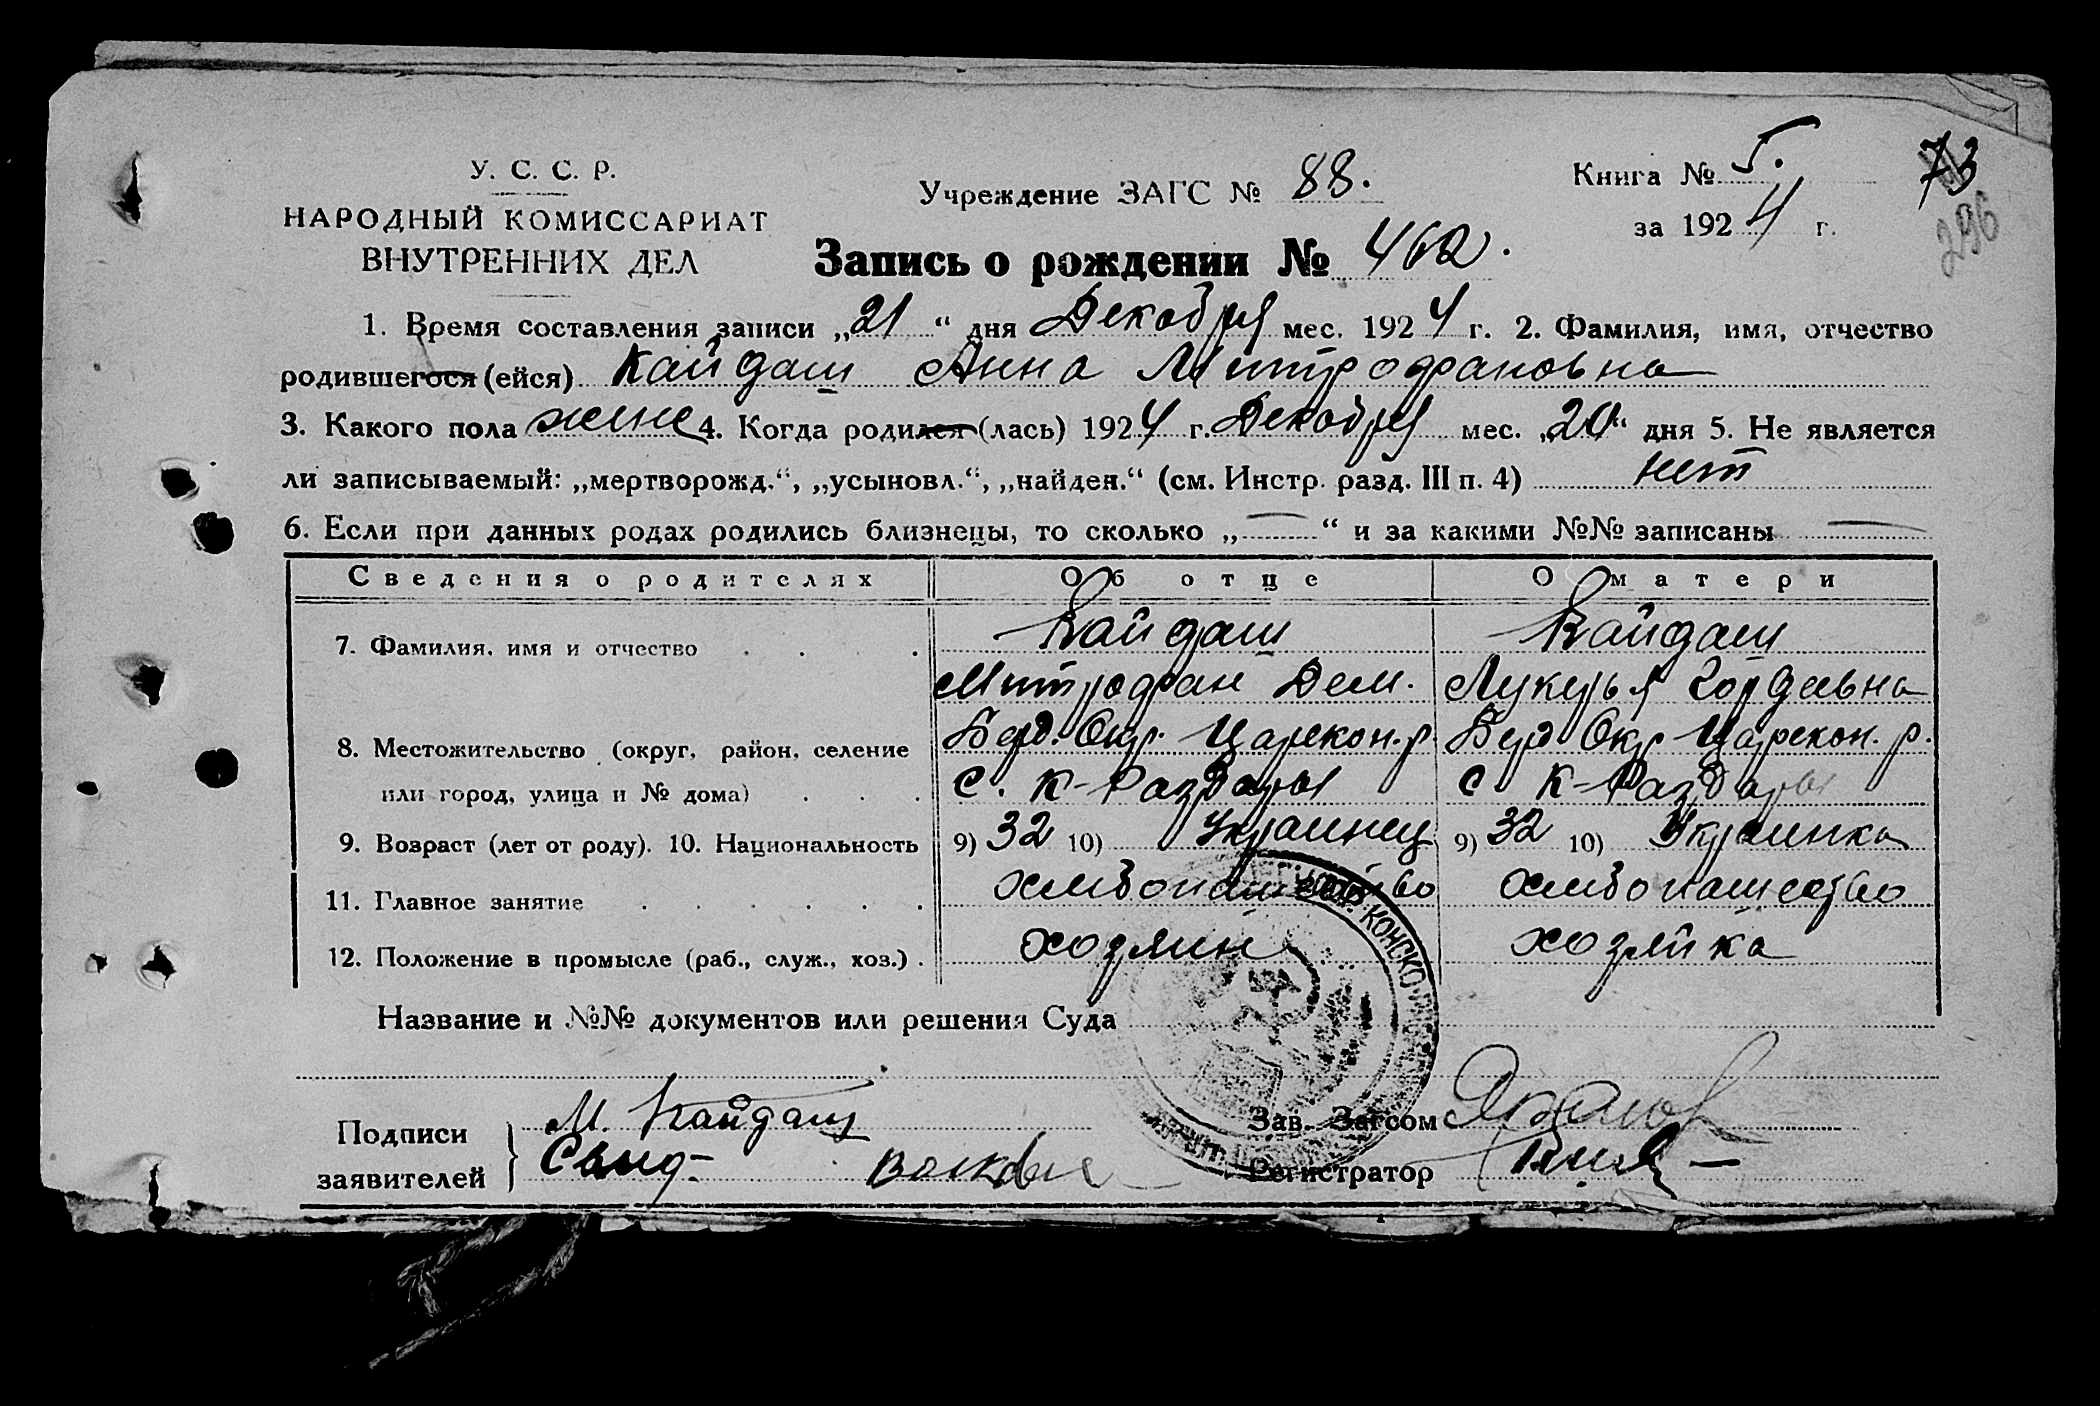 У. С. С. Р.
НАРОДНЫЙ КОМИССАРИАТ
ВНУТРЕННИХ ДЕЛ
Учреждение ЗАГС № 88.
Книга № 5.
за 1924 г.
73
296
Запись о рождении № 462.
1. Время составления записи „21“ дня Декабря мес. 1924 г. 2. Фамилия, имя, отчество
родившегося (ейся) Кайдаш Анна Митрофановна
3. Какого пола женс 4. Когда родился (лась) 1924 г. Декабря мес. „20“ дня 5. Не является
ли записываемый: „мертворожд.“, „усыновл.“, „найден.“ (см. Инстр. разд. III п. 4) нет
6. Если при данных родах родились близнецы, то сколько „—“ и за какими №№ записаны —
Сведения о родителях Об отце О матери
7. Фамилия, имя и отчество Кайдаш Кайдаш
Митрофан Дем. Лукерья Гордеевна
8. Местожительство (округ, район, селение Берд. Окр. Царекон. р. Берд Окр Царекон. р.
или город, улица и № дома) с. К-Раздоры с К-Раздоры
9. Возраст (лет от роду). 10. Национальность 9) 32 10) Украинец 9) 32 10) Украинка
11. Главное занятие хлебопашество хлебопашество
12. Положение в промысле (раб., служ., хоз.) хозяин хозяйка
Название и №№ документов или решения Суда
Подписи М. Кайдаш Зав. Загсом
заявителей Свид- Регистратор